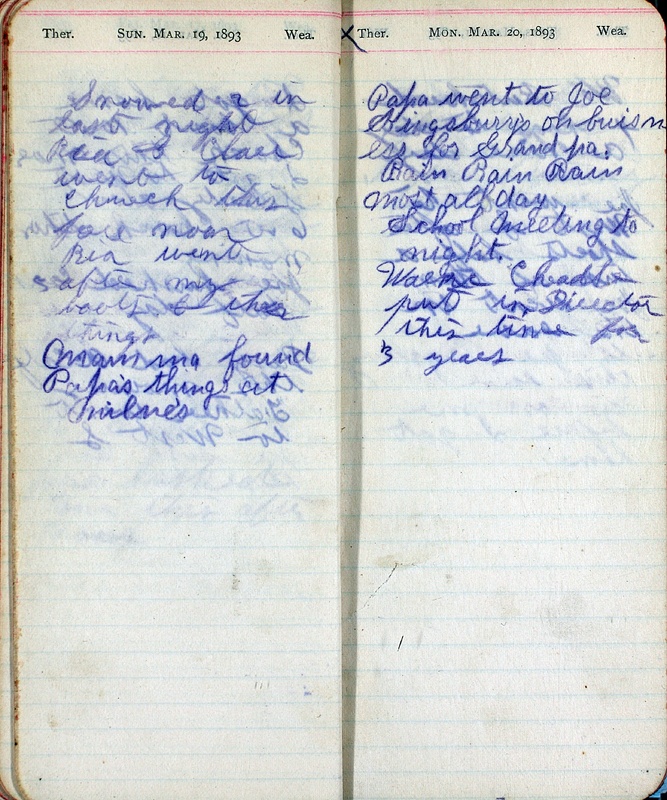 Ther. SUN. MAR. 19, 1893 Wea.
Snowed 2 in
last night
went to
Church this
fore noon
Bea went
after my
boots & other
things
Mamma found
Papa's things at
Milne's
Ther. MON. MAR. 20, 1893 Wea.
Papa went to Joe
Kingsburys on buisn
ess for Grand pa.
Rain Rain Rain
most all day
School Meeting to
night.
put in Director
this time for
3 years